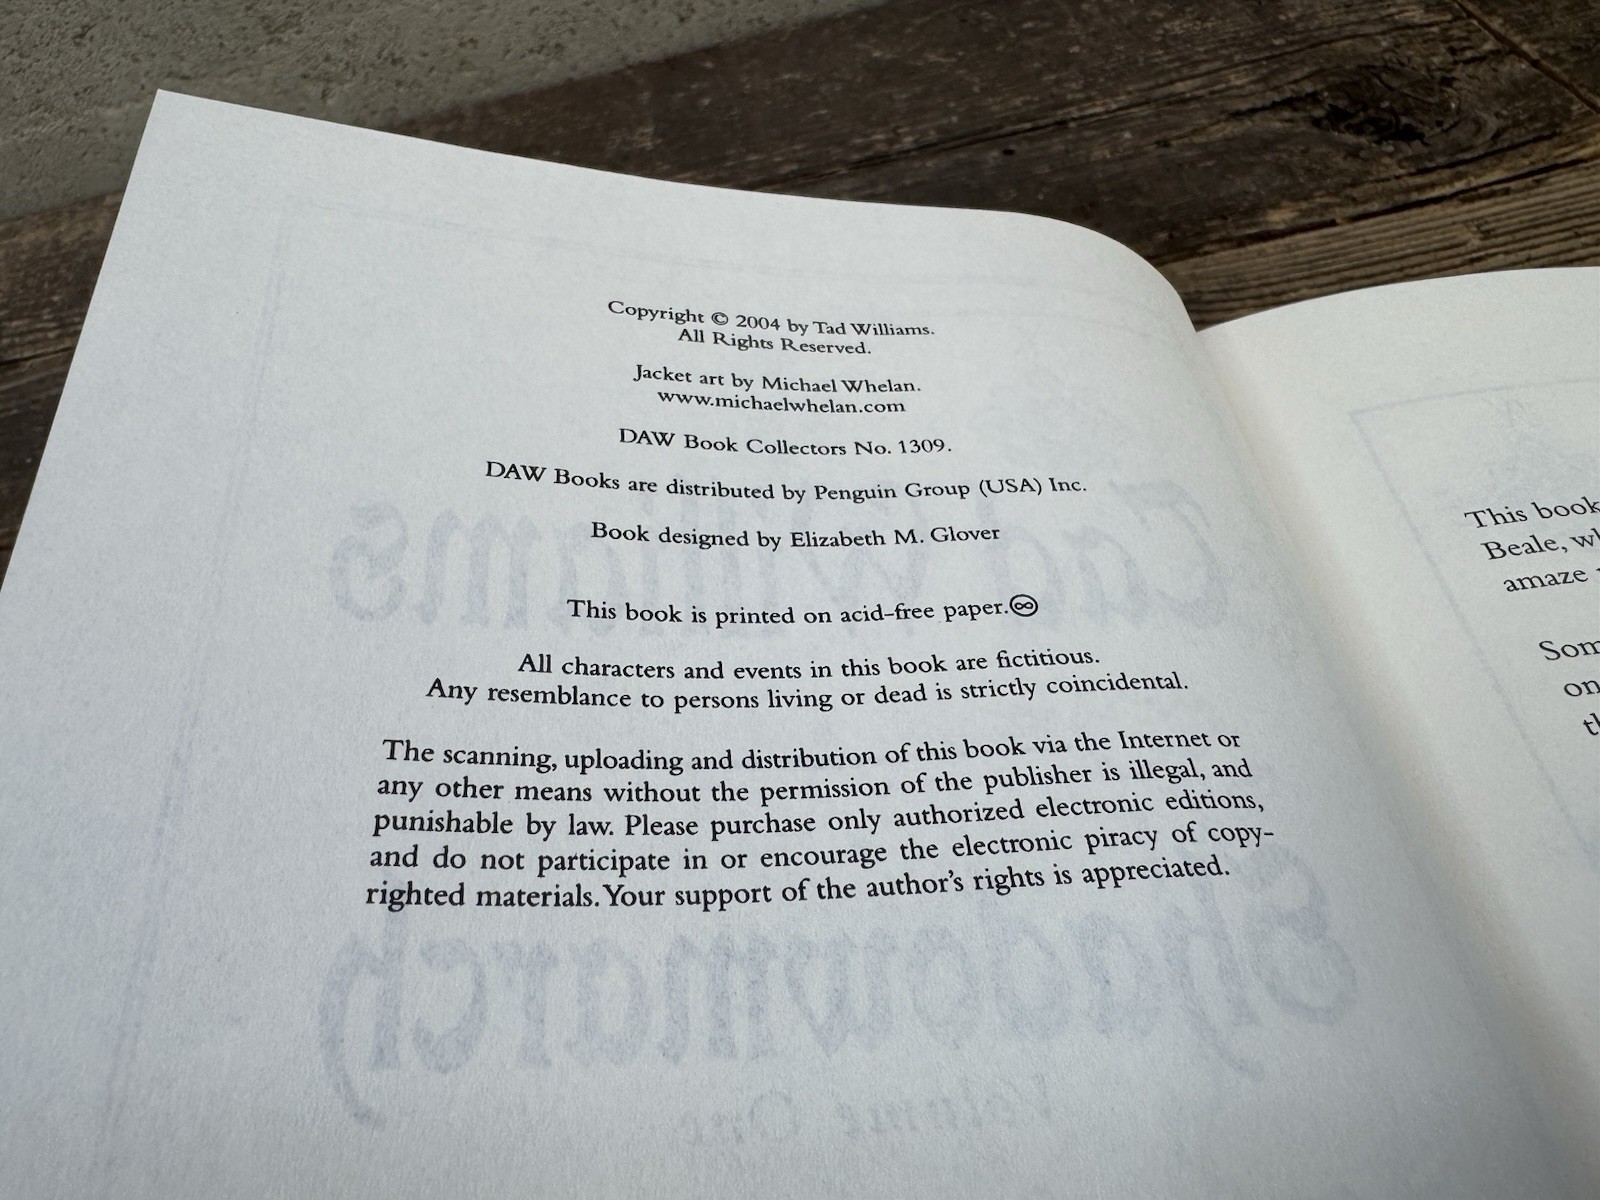 Copyright © 2004 by Tad Williams.
All Rights Reserved.
Jacket art by Michael Whelan.
www.michaelwhelan.com
DAW Book Collectors No. 1309.
DAW Books are distributed by Penguin Group (USA) Inc.
Book designed by Elizabeth M. Glover
This book is printed on acid-free paper.
All characters and events in this book are fictitious.
Any resemblance to persons living or dead is strictly coincidental.
The scanning, uploading and distribution of this book via the Internet or
any other means without the permission of the publisher is illegal, and
punishable by law. Please purchase only authorized electronic editions,
and do not participate in or encourage the electronic piracy of copy-
righted materials. Your support of the author's rights is appreciated.
Tad Williams
Shadowmarch
Volume One
This book
Beale,
amaze